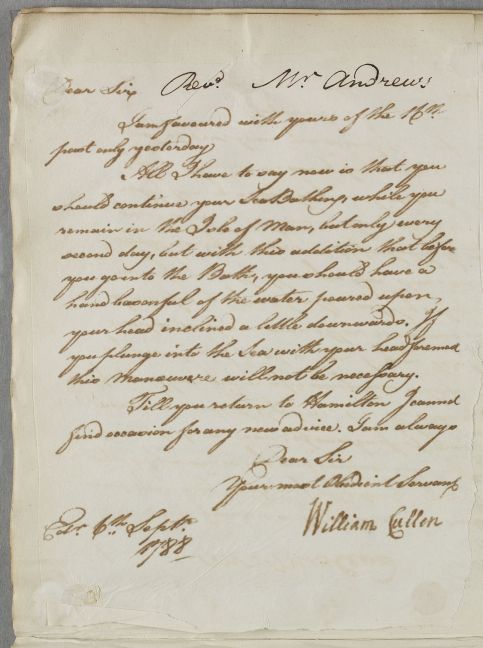 Dear Sir Revd. Mr. Andrews
I am favoured with yours of the 16th.
past only yesterday
All I have to say now is that you
should continue your Sea Bathing, while you
remain in the Isle of Man, but only every
second day, but with this addition that before
you go into the Bath, you should have a
hand basonful of the water poured upon,
your head inclined a little downwards. If
you plunge into the Sea with your head foremost
this manœuvre will not be necessary.
Till you return to Hamilton I cannot
find occasion for any new advice. I am always
Dear Sir
Your most Obedient Servant
William Cullen
Edr. 6th Septr.
1788